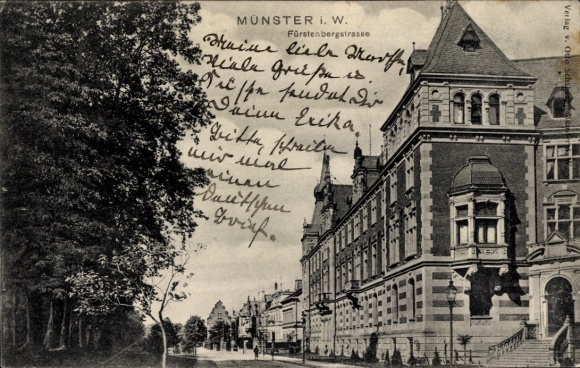 MÜNSTER i. W.
Fürstenbergstrasse
Meine liebe
Viele Grüße u.
Küsse sendet Dir
Deine Erika.
Bitte schreibe
mir mal
einen
deutschen
Brief.
Verlag v. Otto